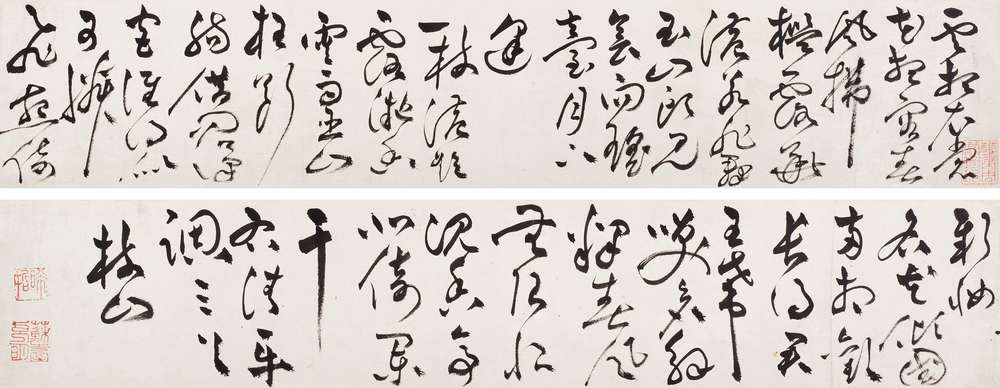 雲想衣裳
花想容春
風拂
檻露華
濃若非群
玉山頭見
會向瑤
臺月下
逢
一枝濃艷
露凝香
雲雨巫山
枉斷
腸借問漢
宮誰得似
可憐
飛燕倚
新妝
名花傾國
兩相歡
長得君
王帶
笑看解
釋春風
無限恨
沉香亭
北倚闌
干
右清平
調三首
枝山